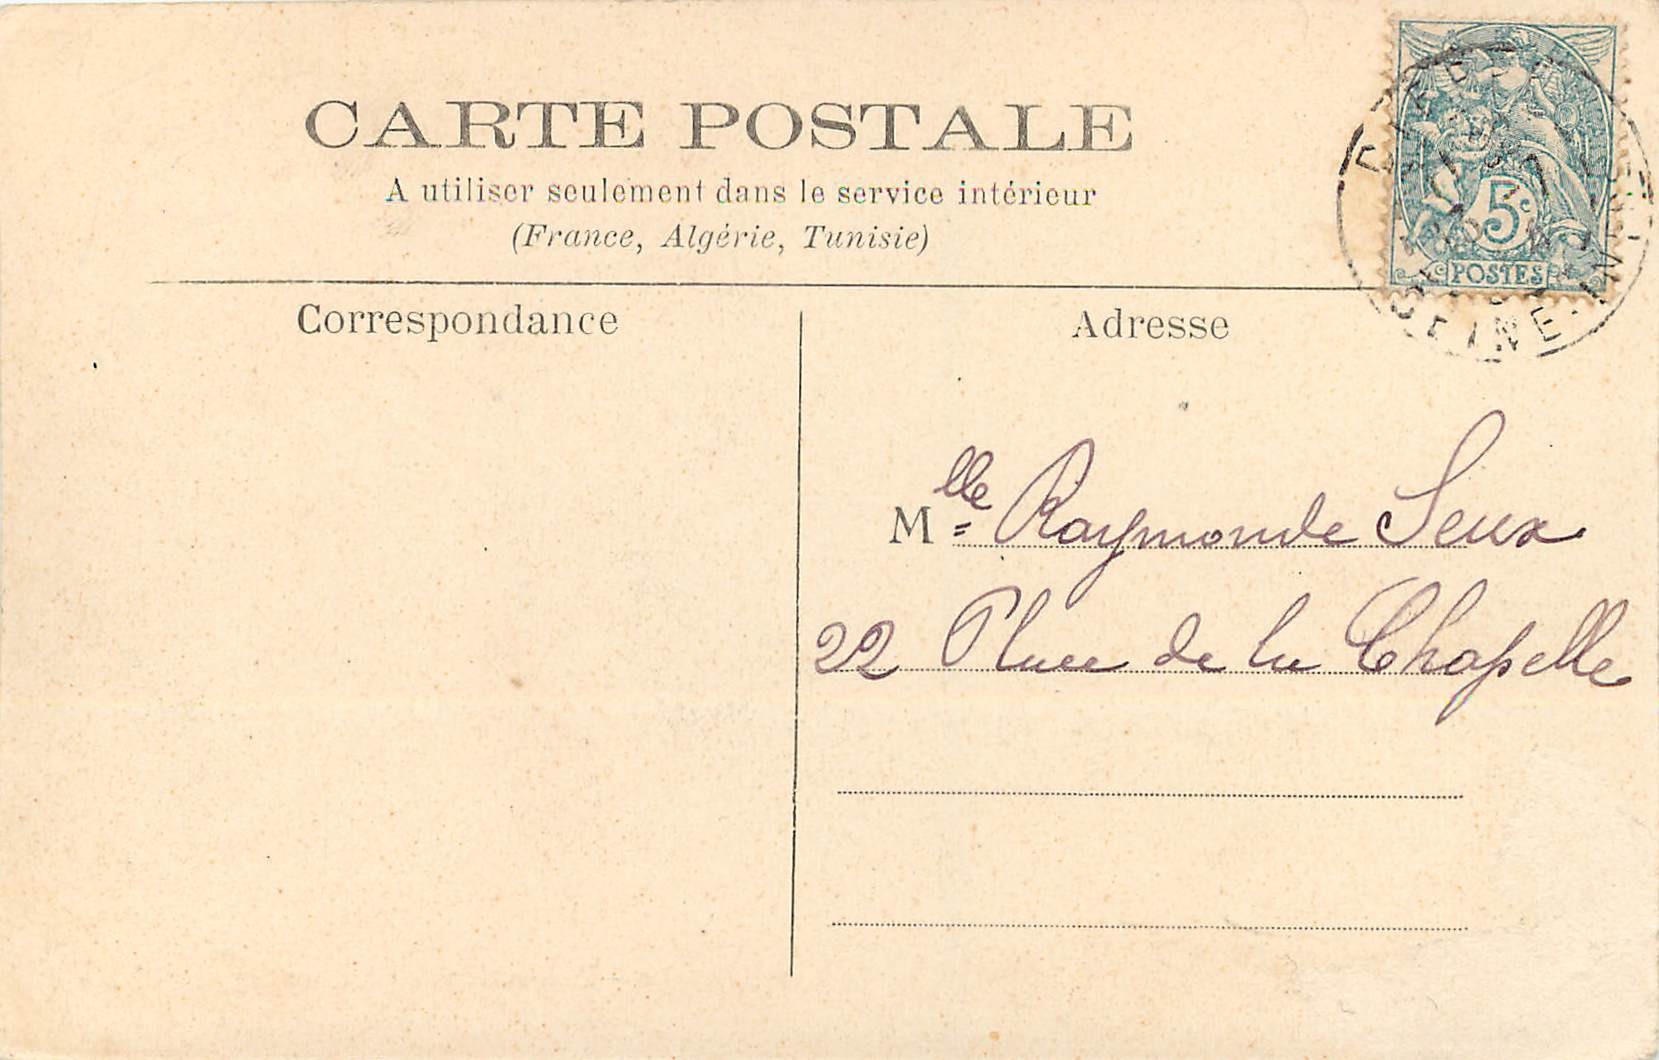 CARTE POSTALE
A utiliser seulement dans le service intérieur
(France, Algérie, Tunisie)
Correspondance
Adresse
5c
POSTES
SEINE
Mlle Raymonde Seux
22 Place de la Chapelle